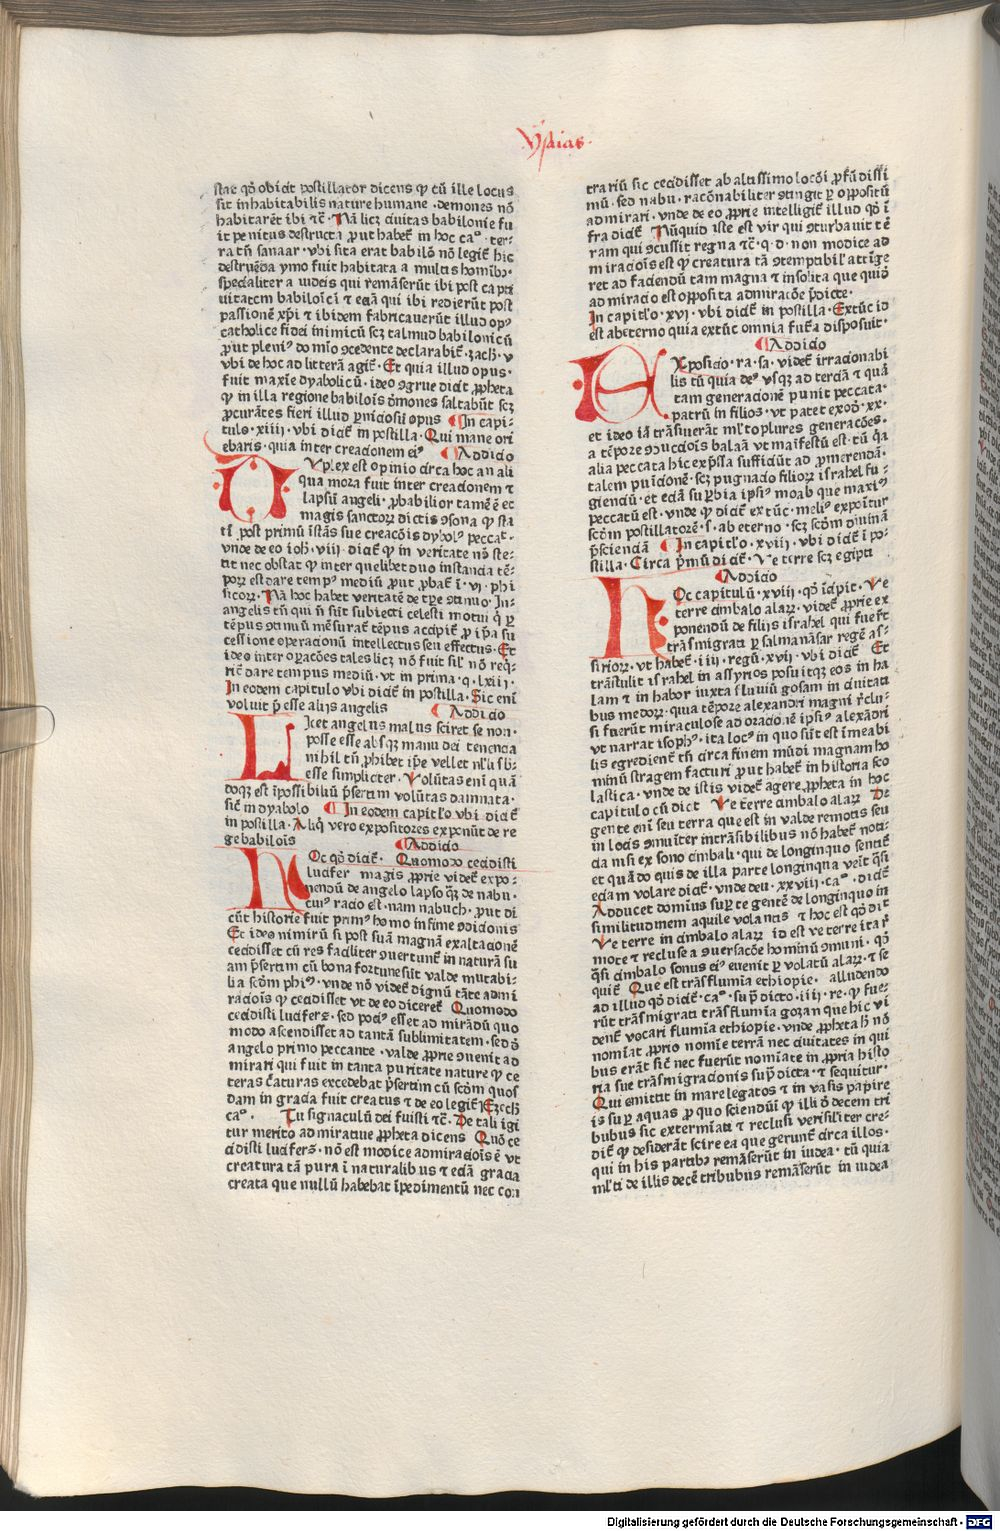 Ysaias
stac qđ obicit postillator dicens ꝙ cū ille locus
sit inhabitabilis nature humane · demones nō
habitarēt ibi tc̄ · Nā licꝫ ciuitas babilonie fu
it penitus destructa ꝓut habet̄ in hoc caº · ter-
ra tn̄ sanaar · vbi sita erat babilō nō legit̄ hic
destruēda ymo fuit habitata a multis homībꝫ ·
specialiter a iudeis qui remāserūt ibi post capti
uitatem babilonicā ⁊ eciā qui ibi redierūt post
passionē xp̄i ⁊ ibidem fabricauerūt illud opꝰ
catholice fidei inimicū scꝫ talmud babilonicū
ꝓut pleniꝰ do mīo ꝯcedente declarabit̄ · zach̄ · v
vbi de hoc ad litterā agit̄ · Et quia illud opus ·
fuit maxīe dyabolicū · ideo ꝯgrue dicit ꝓpheta
ꝙ in illa regione babilois dēmones saltabūt scꝫ
ꝓcurātes fieri illud ꝑniciosū opus In capi-
tulo · xiiii · vbi dicit̄ in postilla · Qui mane ori
ebaris · quia inter creacionem eiꝰ Addicio
Duplex est opinio circa hoc an ali
qua mora fuit inter creacionem ⁊
lapsū angeli · ꝓbabilior tamē ē et
magis sanctorꝝ dictis ꝯsona ꝙ sta
tī post primū īstās sue creacōis dyabolꝰ peccat ·
vnde de eo ioh̄ · viii · dicit̄ ꝙ in veritate nō ste-
tit nec obstat ꝙ inter quelibet duo instancia tē-
porꝝ est dare tempꝰ mediū ꝓut ꝓbat̄ ī · vi · phi
sicorꝝ · Nā hoc habet veritatē de tꝑe ꝯtinuo · In
angelis tn̄ qui nō sūt subiecti celesti motui q̇ ꝑ
tēpus ꝯtinuū mēsurat̄ tēpus accipit̄ ꝓ ip̄a su
cessione operacionū intellectus seu effectus · Et
ideo inter oꝑacōes tales licꝫ nō fuit sil̄ nō req̇
rit̄ dare tempus mediū · vt in prima · q · lxiii ·
In eodem capitulo vbi dicit̄ in postilla · Sic enī
voluit p̄esse alijs angelis Addicio
Licet angelus malus sciret se non ·
posse esse absqꝫ manu dei tenencia
nihil tn̄ ꝓhibet ip̄e vellet nl̄li sb-
esse simpliciter · Volūtas enī quā
doqꝫ est īpossibiliū p̄sertim volūtas damnata ·
sic̄ in dyabolo In eodem capitl̄o vbi dicit̄
in postilla · Aliq̇ vero expositores exponūt de re
ge babilois Addicio
Hoc qđ dicit̄ · Quomodo cecidisti
lucifer magis ꝓprie videt̄ expo-
nendū de angelo lapso q̄ꝫ de nabu ·
cuiꝰ racio est · nam nabuch · ꝓut di
cūt historie fuit primꝰ homo infime ꝯdicionis
Et ideo nimirū si post suā magnā exaltacionē
cecidisset cū res faciliter ꝯuertunt̄ in naturā su
am p̄sertim cū bona fortune sūt valde mutabi-
lia scd̄m phiꝰ · vnde nō videt̄ dignū tāte admi
racōis ꝙ cecidisset vt de eo diceret̄ Quomodo
cecidisti lucifer ꝫ · sed pociꝰ esset ad mirādū quo
modo ascendisset ad tantā sublimitatem · sed d̄
angelo primo peccante · valde ꝓprie ꝯuenit ad
mirari qui fuit in tanta puritate nature ꝙ ce
teras c̄aturas excedebat p̄sertim cū scd̄m quos
dam in gracia fuit creatus ⁊ de eo legit̄ Ezech̄
caº · Tu signaculū dei fuisti tc̄ · De tali igi
tur merito ad miratiue ꝓpheta dicens Quō ce
cidisti luciferꝫ · nō est modice admiracōis ē vt
creatura tā pura ī naturalibus ⁊ eciā gracia
creata que nullū habebat īpedimentū nec con
trariū sic cecidisset ab altissimo locōi ꝓfūdissi
mū · sed nabu · racōnabiliter ꝯtingit ꝑ oppositū
admirari · vnde de eo ꝓprie intelligit̄ illud qđ ī
fra dicit̄ Nūquid iste est vir qui ꝯturbauit tē
ram qui ꝯcussit regna tc̄ · q · d · non modice ad
miracōis est ꝙ creatura tā ꝯtemptibil' attīge
ret ad faciendū tam magna ⁊ insolita que quid̄
ad miracio est opposita admiracōe p̄dicte ·
In capitl̄o · xvi · vbi dicit̄ in postilla · Extūc id
est ab eterno quia extūc omnia futᷓa disposuit ·
Addicio
Exposicio · ra · sa · videt̄ irracionabi
lis tū quia deꝰ vsqꝫ ad terciā ⁊ quā
tam generacionē punit peccata ·
patrū in filioꝫ · vt patet exođ · xx ·
et ideo iā trāsiuerāt ml̄to plures generacōes ·
a tēpore ꝯuicciōis balaā vt maīfestū est · tū q̇a
alia peccata hic expssa sufficiūt ad ꝓmerendā ·
talem puīcionē · scꝫ pugnacio filiorꝝ israhel fu-
giendū · et eciā suꝑbia ipsiꝰ moab que maxiꝰ
peccatū est · vnde ꝙ dicit̄ extūc · meliꝰ exponitur
scd̄m postillatorē · s · ab eterno · scꝫ scd̄m diuinā
p̄scienciā In capitl̄o · xviii · vbi dicit̄ ī po-
stilla · Circa p̄mū dicit̄ · Ve terre scꝫ egipti
Addicio
Hoc capitulū · xviii · qđ īcipit · Ve
terre cimbalo alarꝝ · videt̄ ꝓprie ex
ponendū de filijs israhel qui fuer̄t
trāsmigrati ꝑ salmanāsar regē as-
siriorꝝ · vt habet̄ · iiii · regū · xvii · vbi dicit̄ Et
trāstulit israhel in assyrios posuitqꝫ eos in ha
lam ⁊ in habor iuxta fluuiū gosam in ciuitati
bus medorꝝ · quia tēpore alexandri magni r̄clu-
si fuerūt miraculose ad oracionē ipsiꝰ alexādri
vt narrat iosephꝰ · ita locꝰ in quo sūt est īmeabi
lis egredient̄ tn̄ circa finem mūdi magnam ho
minū stragem facturi ꝓut habet̄ in historia sco
lastica · vnde de istis videt̄ agere ꝓpheta in hoc
capitulo cū dicit Ve terre cimbalo alarꝝ De
gente enī seu terra que est in valde remotis seu
in locis ꝯmuniter intrāsibilibus nō habet̄ noti-
cia nisi ex sono cimbali · qui de longinquo sentit̄
et quādo quis de illa parte longinqua venit q̄si
eciam volare dicit̄ · vnde deu · xxviii · caº · dicit̄
Adducet domīus suꝑ te gentē de longinquo in
similitudinem aquile volantis ⁊ hoc est qđ dicit
Ve terre in cimbalo alarꝝ id est ve terre ita r̄
mote ⁊ recluse a ꝯuersacōe hominū ꝯmuni · qđ
q̄si cimbalo sonus eiꝰ euenit ꝑ volatū alarꝝ · ⁊ se
quit̄ Que est trās flumīa ethiopie · alludendo
ad illud qđ dicit̄ · caº · supᷓ dicto · iiii · re · ꝙ fue-
rūt trāsmigrati trās flumīa gozan que hic vi
dent̄ vocari flumīa ethiopie · vnde ꝓpheta hꝫ nō
nomīat ꝓprio nomīe terrā nec ciuitates in qui
bus erāt sic̄ nec fuerūt nomīate in ꝓpria histo
ria sue trāsmigracionis supᷓ dicta · ⁊ sequitur ·
Qui emittit in mare legatos ⁊ in vasis papire
is suꝑ aquas ꝓ quo sciendū ꝙ illi d̄ decem tri
bubus sic extermīati ⁊ reclusi verisil̄iter cre-
dit̄ ꝙ desiderāt scire ea que gerunt̄ circa illos ·
qui in his partibꝫ remāserūt in iudea · tū quia
ml̄ti de illis decē tribubus remāserūt in iudea
Digitalisierung gefördert durch die Deutsche Forschungsgemeinschaft - DFG